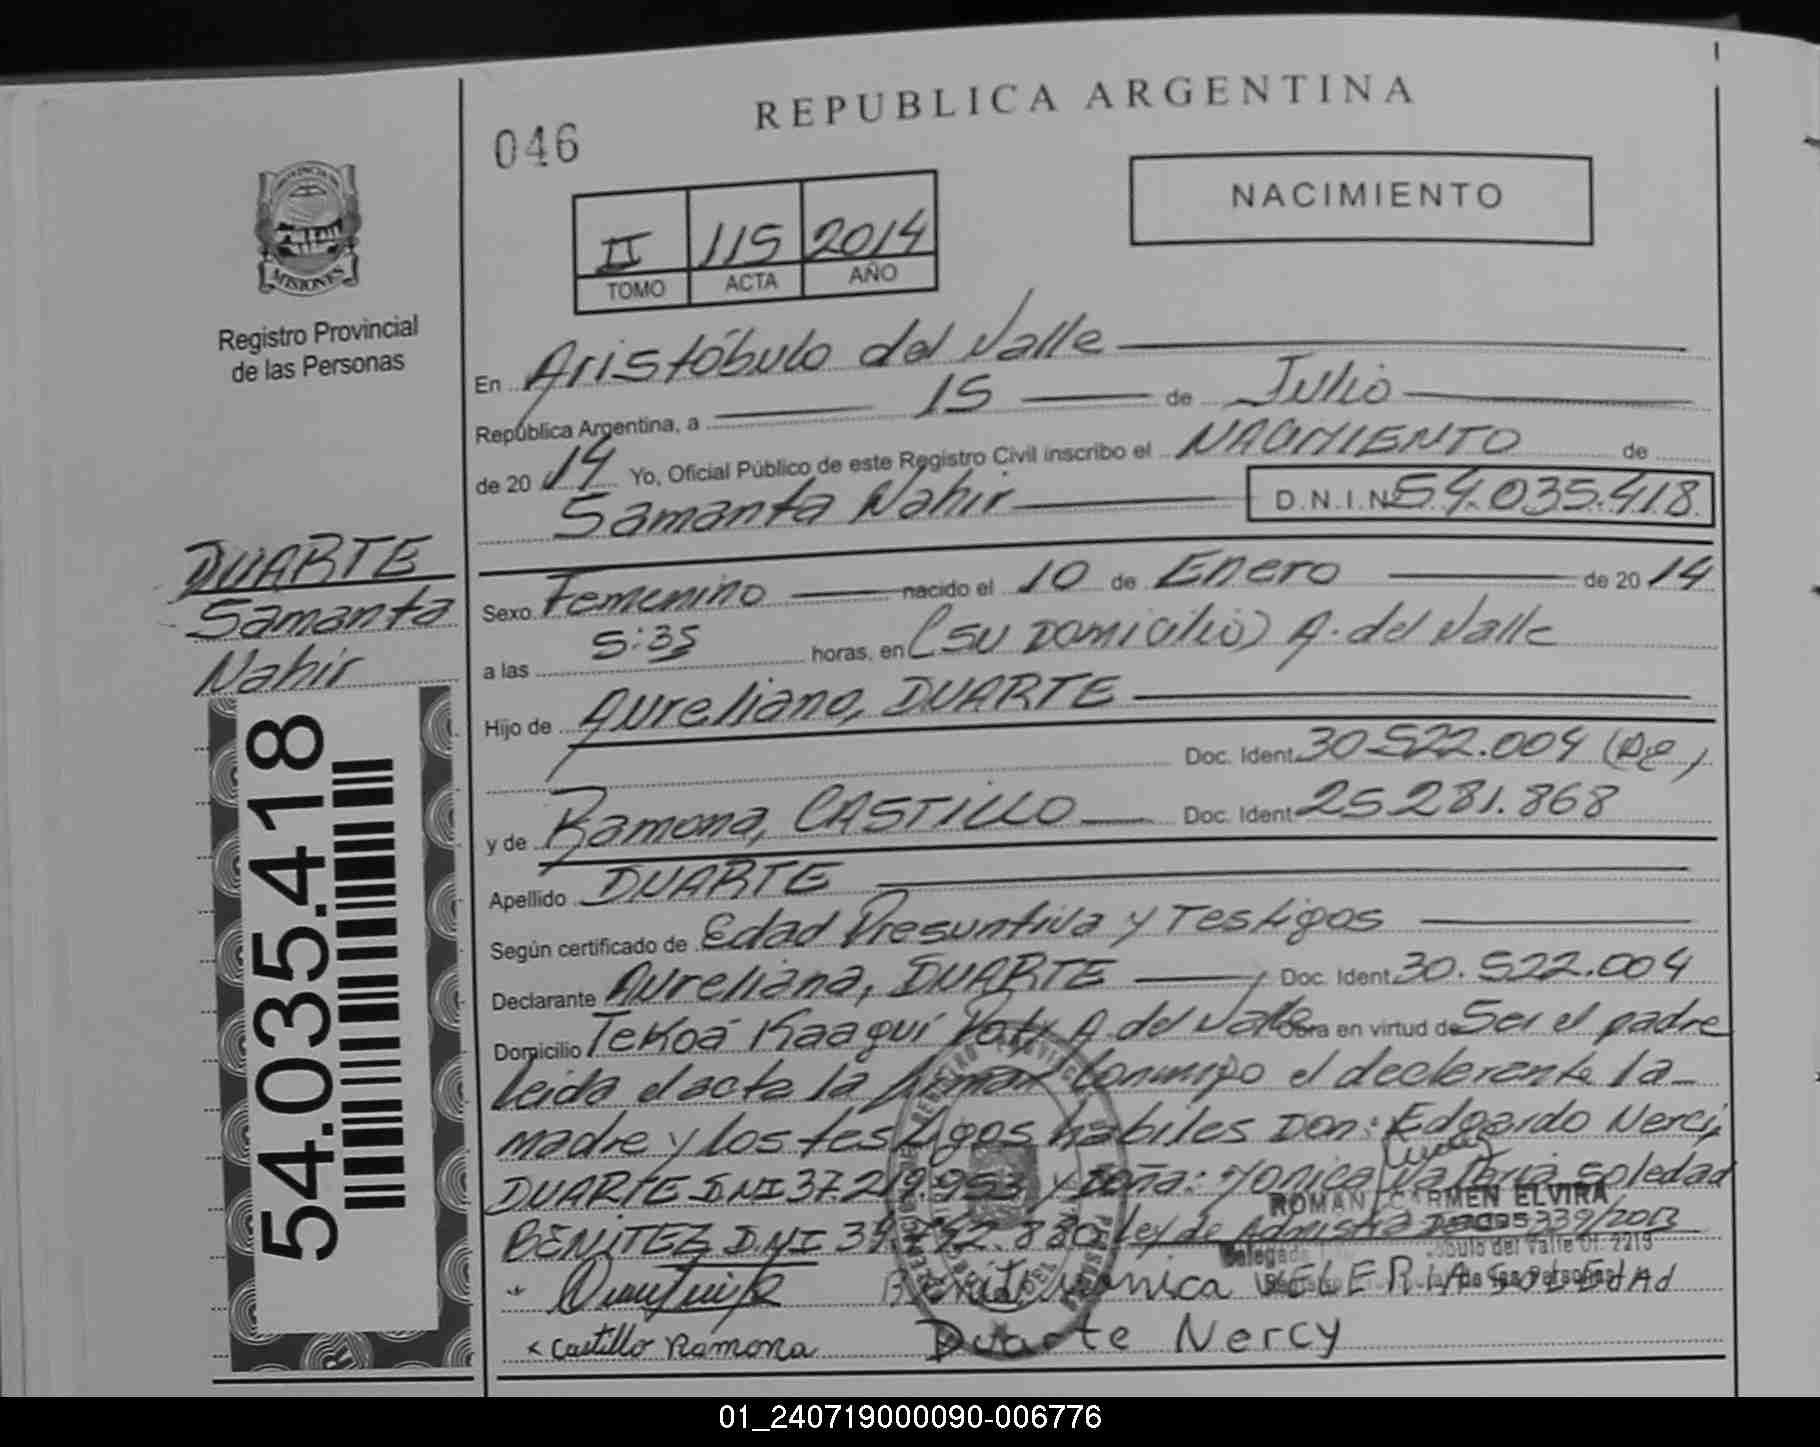 REPUBLICA ARGENTINA
046
NACIMIENTO
II 115 2014
TOMO ACTA AÑO
PROVINCIA DE
MISIONES
Registro Provincial
de las Personas
En Aristóbulo del Valle
República Argentina, a 15 de Julio
de 20 14 Yo, Oficial Público de este Registro Civil inscribo el NACIMIENTO de
Samanta Nahir D.N.I.N 54.035.418
DUARTE
Samanta
Nahir
54.035.418
Sexo Femenino nacido el 10 de Enero de 20 14
a las 5:35 horas, en (su Domicilio) A. del Valle
Hijo de Aureliano, DUARTE
Doc. Ident. 30.522.004 (Pe)
y de Ramona, CASTILLO Doc. Ident 25 281.868
Apellido DUARTE
Según certificado de Edad Presuntiva y Testigos
Declarante Aureliana, DUARTE Doc. Ident. 30.522.004
Domicilio Tekoá Kaaguí Poty A. del Valle Obra en virtud de Ser el padre
Leida el acta la firman Conmigo el declarante la
madre y los testigos habiles Don: Edgardo Nercy
DUARTE DNI 37.219.953 y Doña: Yonica Valeria Soledad
BENITEZ DNI 39. .830 Ley de Admista 339/2013
ROMAN CARMEN ELVIRA
Delegada
del Valle Of. 2213
de las Personas
VELERIA SOLEDAd
Castillo Ramona Duarte Nercy
01_240719000090-006776